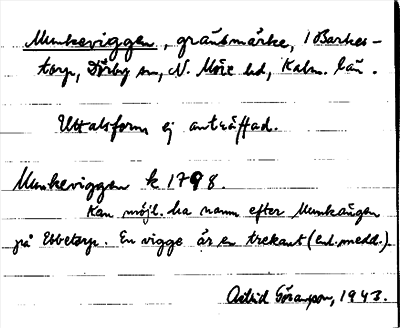 Munkeviggen, gränsmärke, i Barkes-
torp, Dörby sn, N. Möre hd, Kalm. län.
Uttalsform ej anträffad.
Munkeviggen k 1798.
Kan möjl. ha namn efter Munkängen
på Ebbetorp. En vigge är en trekant (enl. medd.).
Astrid Göranson, 1943.